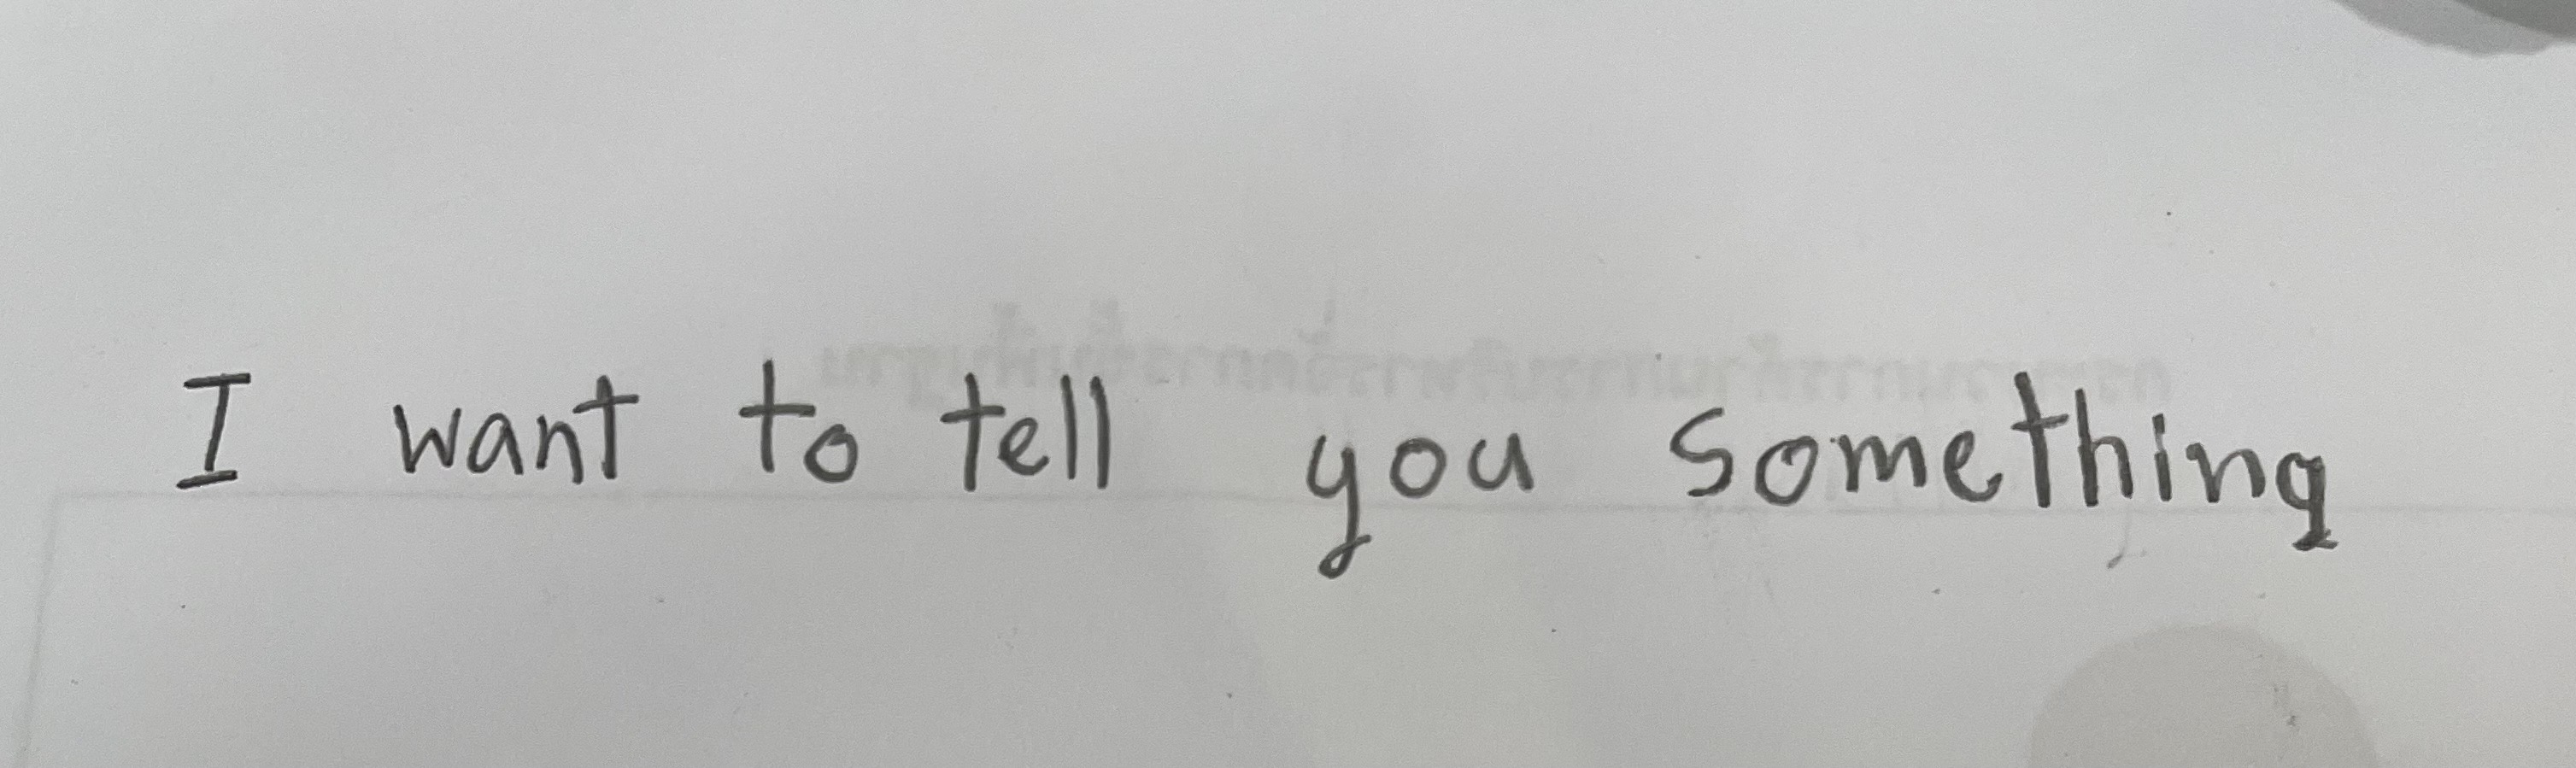 I want to tell you something